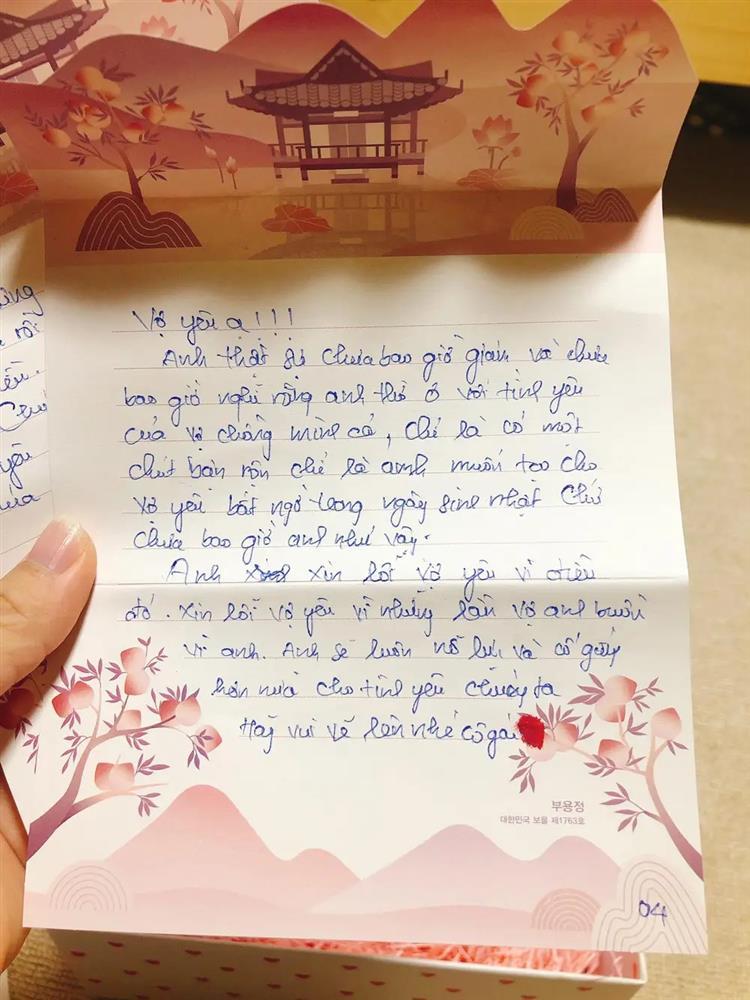 ũng
rồi
ều.
Chú
yêu
ứa
Vợ yêu ạ!!!
Anh thật sự chưa bao giờ giận và chưa
bao giờ nghĩ rằng anh thờ ơ với tình yêu
của vợ chồng mình cả, Chỉ là có một
chút bận rộn chỉ là anh muốn tạo cho
vợ yêu bất ngờ trong ngày sinh nhật Chứ
chưa bao giờ anh như vậy.
Anh xin lỗi vợ yêu vì điều
đó. Xin lỗi vợ yêu vì những lần vợ anh buồn
vì anh. Anh sẽ luôn nỗ lực và cố gắng
hơn nữa cho tình yêu chúng ta
Hãy vui vẻ lên nhé cô gái
부용정
대한민국 보물 제1763호
04